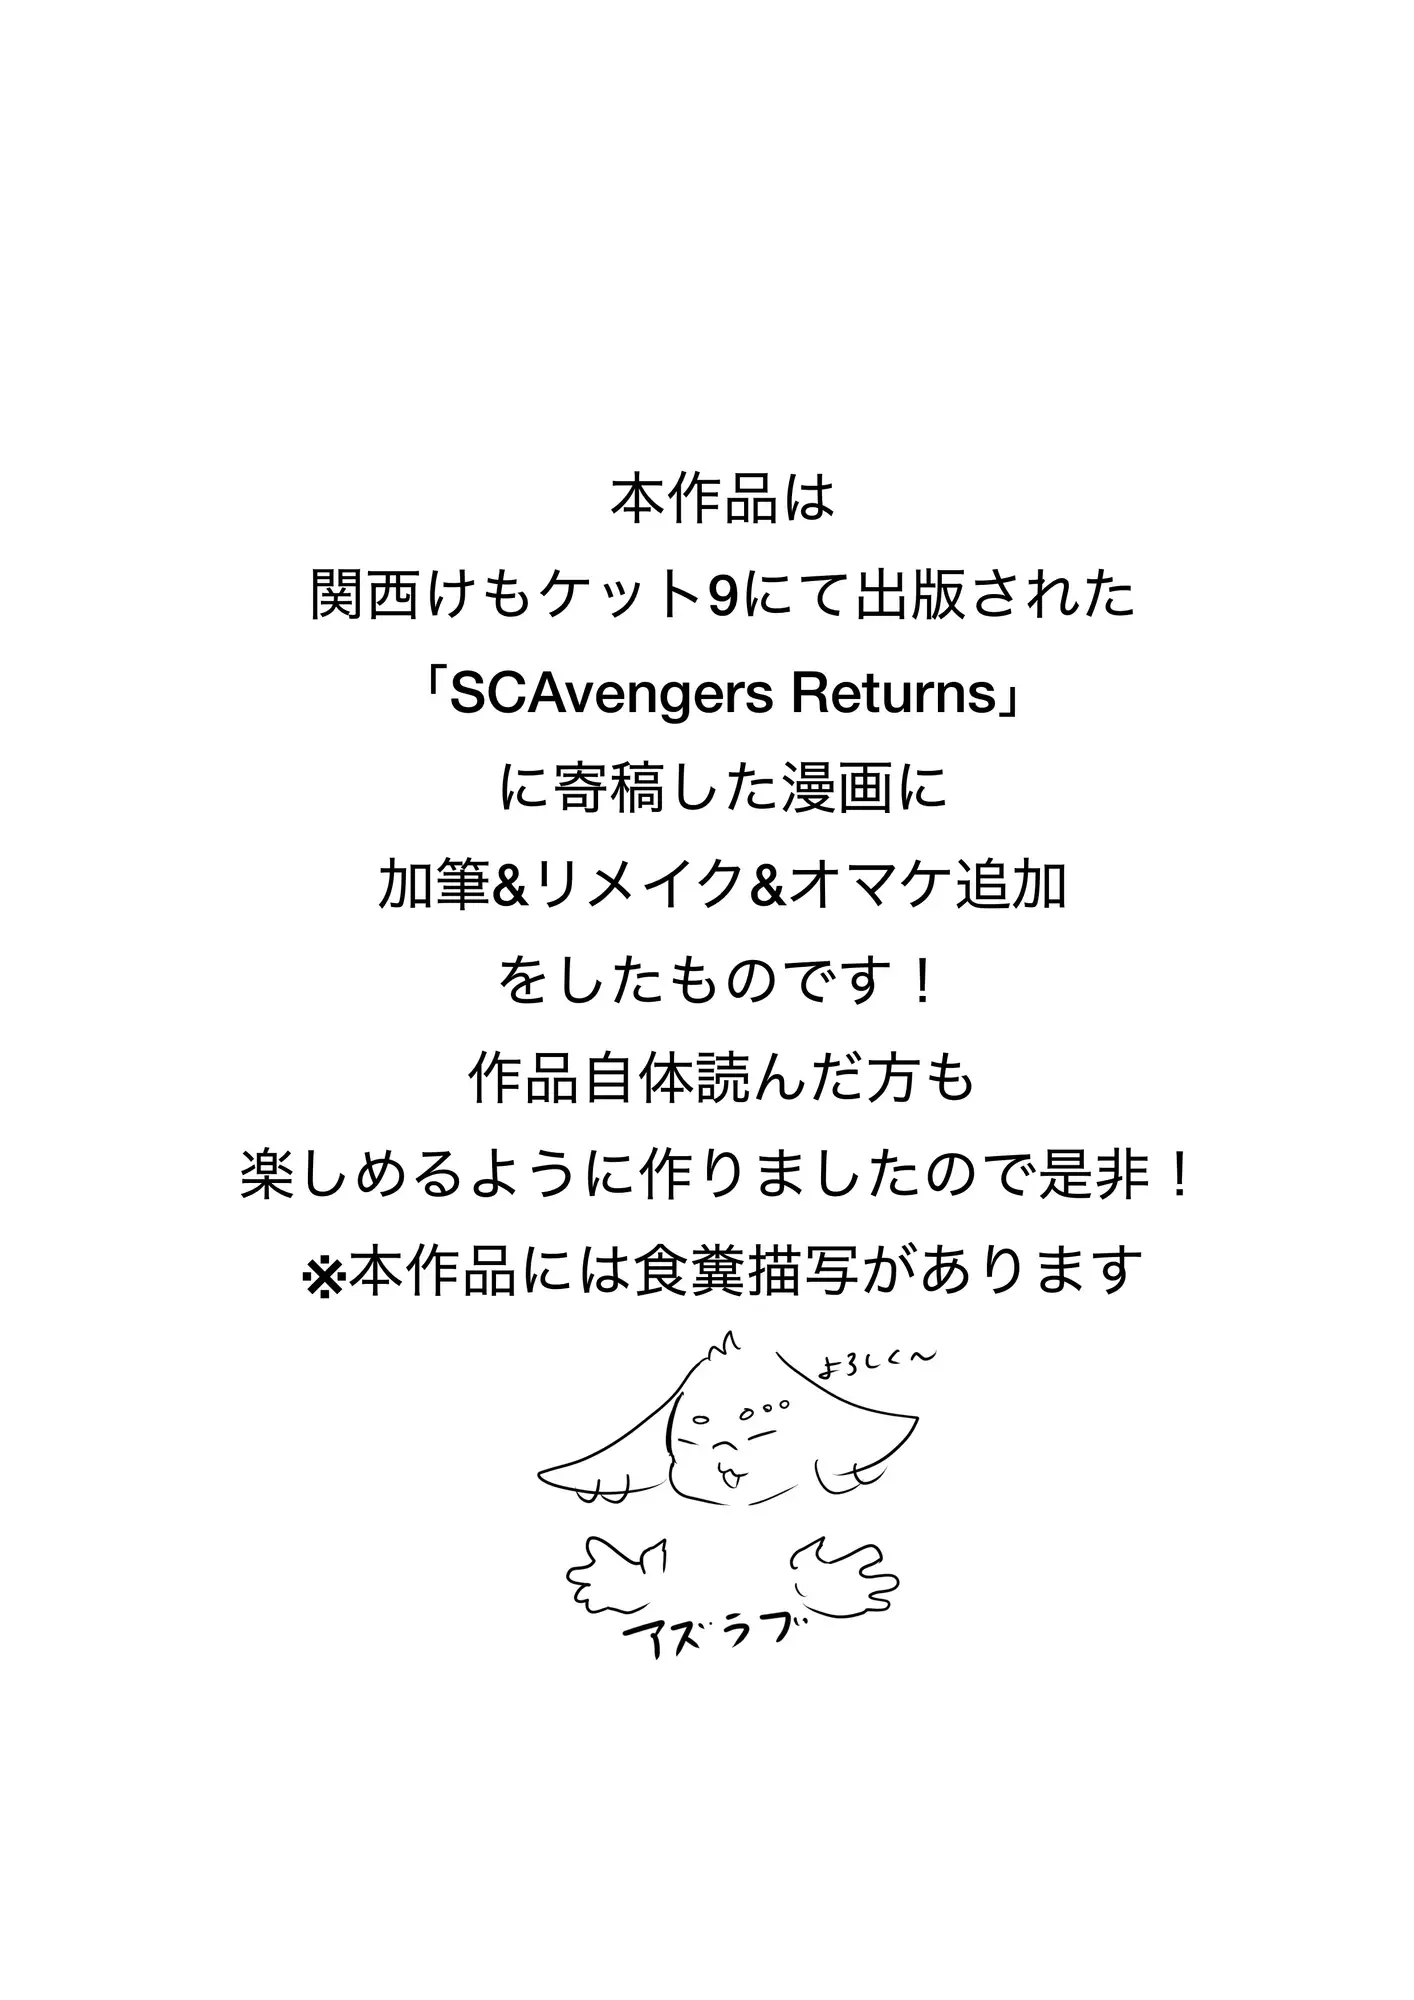 本作品は
関西けもケット9にて出版された
「SCAvengers Returns」
に寄稿した漫画に
加筆&リメイク&オマケ追加
をしたものです！
作品自体読んだ方も
楽しめるように作りましたので是非！
※本作品には食糞描写があります
よろしく〜
アズラブ